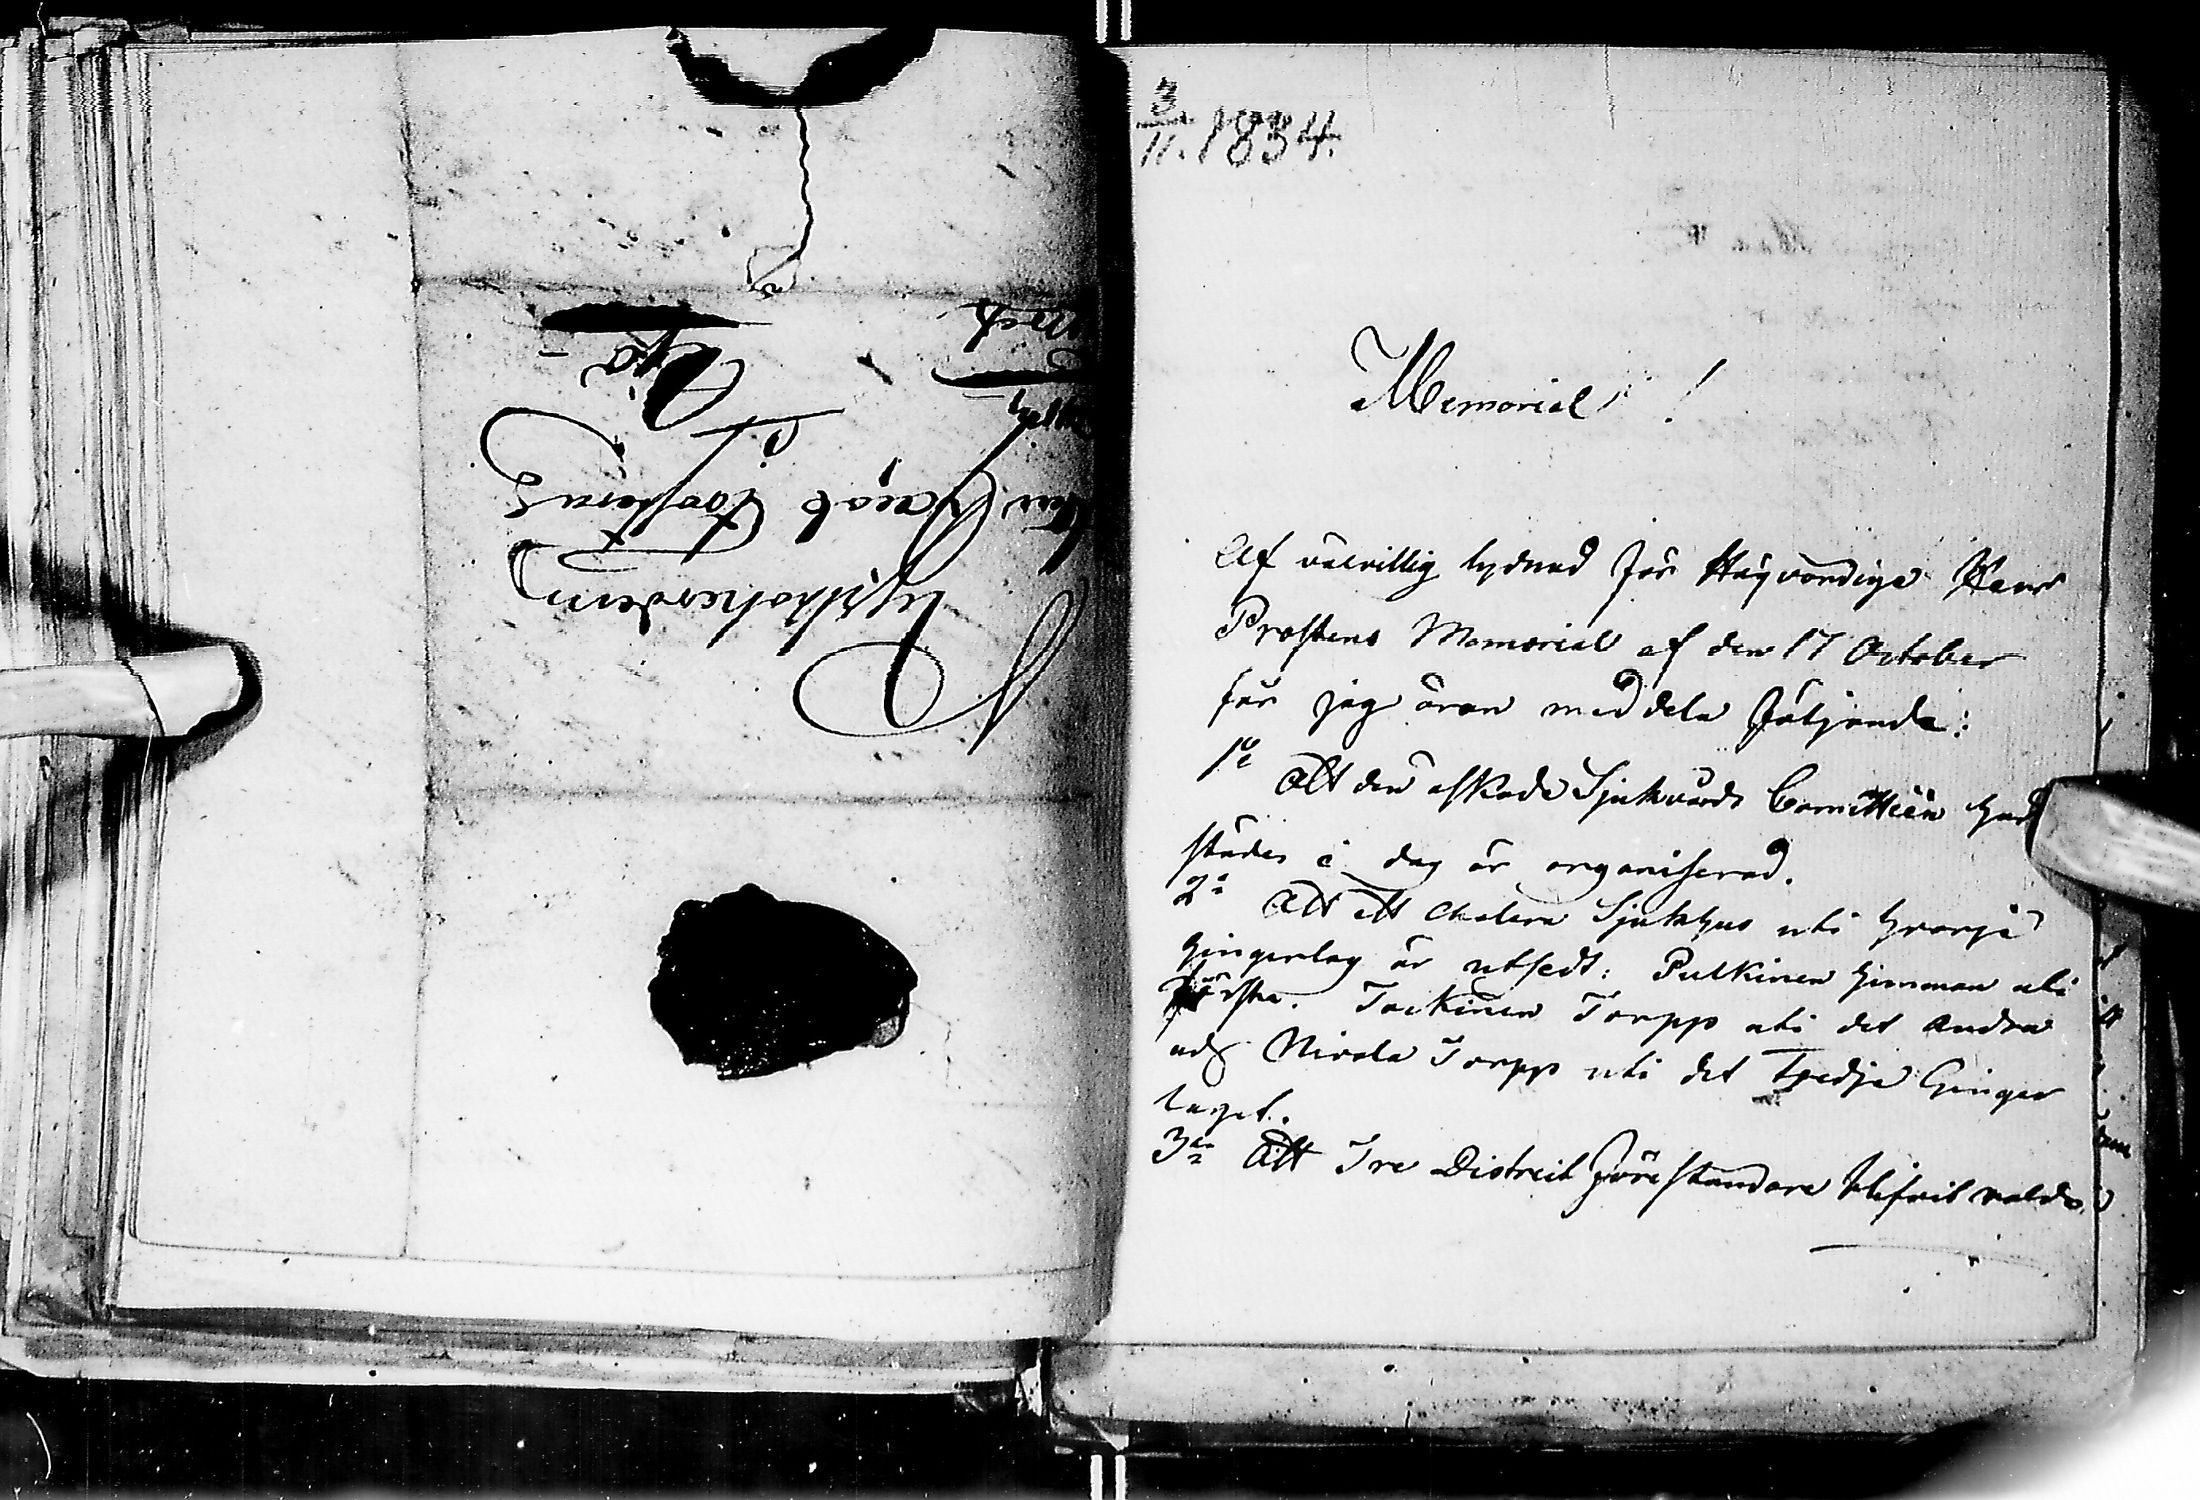 Kyrkoherden
Jacob
3/11. 1834.
Memorial!
Af välvillig lydnad för Högvördige Herr
Prostens Memorial af den 17 October
får jag äran meddela följande:
1o Att den äskade Sjukvårds Comitteen här
städes i dag är organiserad.
2o Att ett Cholera Sjukhus uti hvarje
Gingerlag är utsedt: Pulkinen Himman uti
första. Torkinen Torpp uti det Andra
och Nivala Torpp uti det Tredje Ginger
laget.
3o Att Tre District Föreståndare blifvit valde